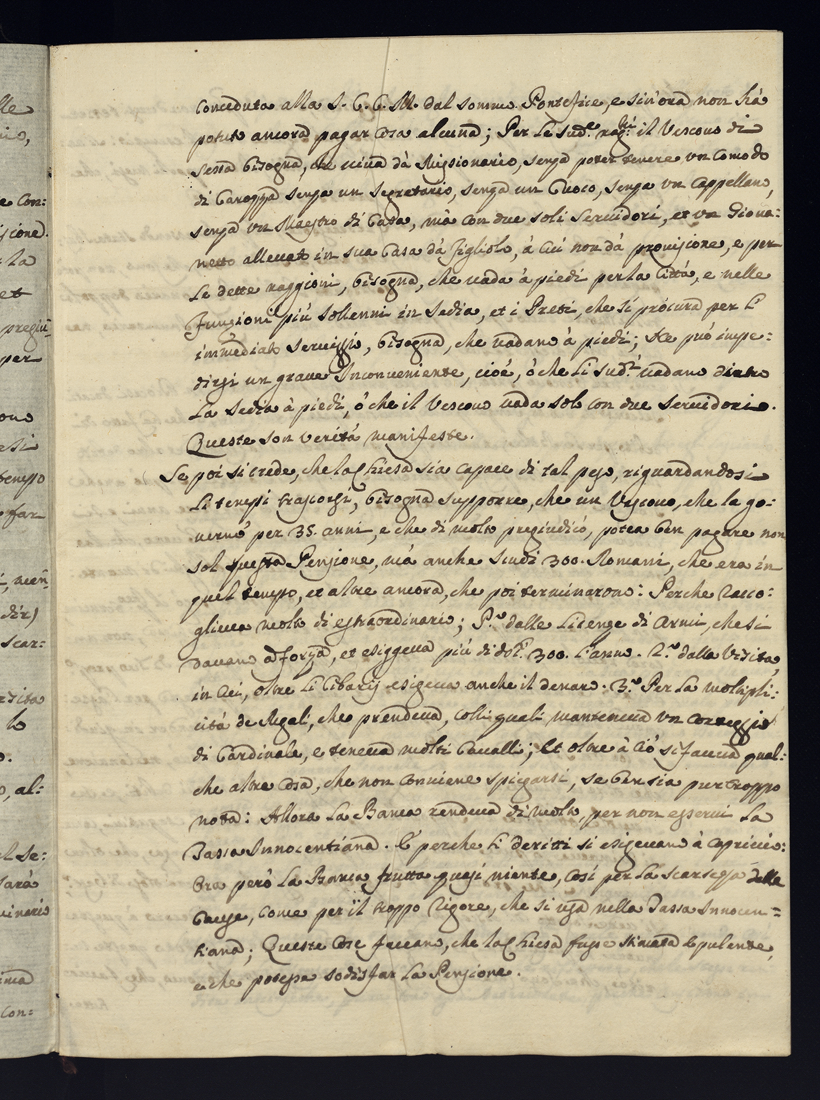 lle
e con:
sione.
et
pregiu-
per
ono
esi
tempo
far
dir)
scar-
visita
lo
o, al:
el se:
sarà
minario
con:
conceduta alla S. C. C. M. dal sommo Pontefice, e sin'ora non hà
potuto ancora pagar cosa alcuna; Per le sud.e rag.ni il Vescovo di
Senta bisogna, che viva dà Missionario, senza poter tenere un comodo
di Carozza senza un Segretario, senza un Cuoco, senza un Cappellano,
senza un Maestro di Casa, mà con due soli Servidori, et un Giova:
netto allevato in sua Casa dà figliolo, à cui non dà provisione, e per
le dette raggioni, bisogna, che vada à piedi per la Città, e nelle
Funzioni più sollenni in Sedia, et i Preti, che si procura per l'
immediato serviggio, bisogna, che vadano à piedi; Ne può impe:
dirsi un grave Inconveniente, cioè, ò che li sud.i vadano dietro
la Sedia à piedi, ò che il Vescovo vada solo con due Servidori.
Queste son verità manifeste.
Se poi si crede, che la Chiesa sia capace di tal peso, riguardandosi
li tempi trascorsi, bisogna supporre, che un Vescovo, che la go:
vernò per 35. anni, e che di molto pregiudicò, potea ben pagare non
sol questa Pensione, mà anche scudi 300. Romani, che era in
quel tempo, et altre ancora, che poi terminarono: Perche racco:
glieva molto di estraordinario; P.o dalle Licenze di Armi, che si
davano à forza, et esiggeva più di do.i 300. l'anno. 2.o dalla Visita,
in cui, oltre li cibarij esigeva anche il denaro. 3.o Per la moltipli:
cità de Regali, che prendeva, colli quali manteneva un correggio
di Cardinale, e teneva molti Cavalli; Et oltre à ciò si faceva qual:
che altra cosa, che non conviene spiegarsi, se ben sia pur troppo
nota: Allora la Banca rendeva di molto, per non esservi la
Tassa Innocentiana. E perche li deritti si esigevano à capriccio:
Ora però la Banca frutta quasi niente, così per la scarsezza delle
Cause, come per il troppo rigore, che si usa nella Tassa Innocen:
tiana; Queste cose faceano, che la Chiesa fusse stimata opulente,
e che potesse sodisfar la Pensione.